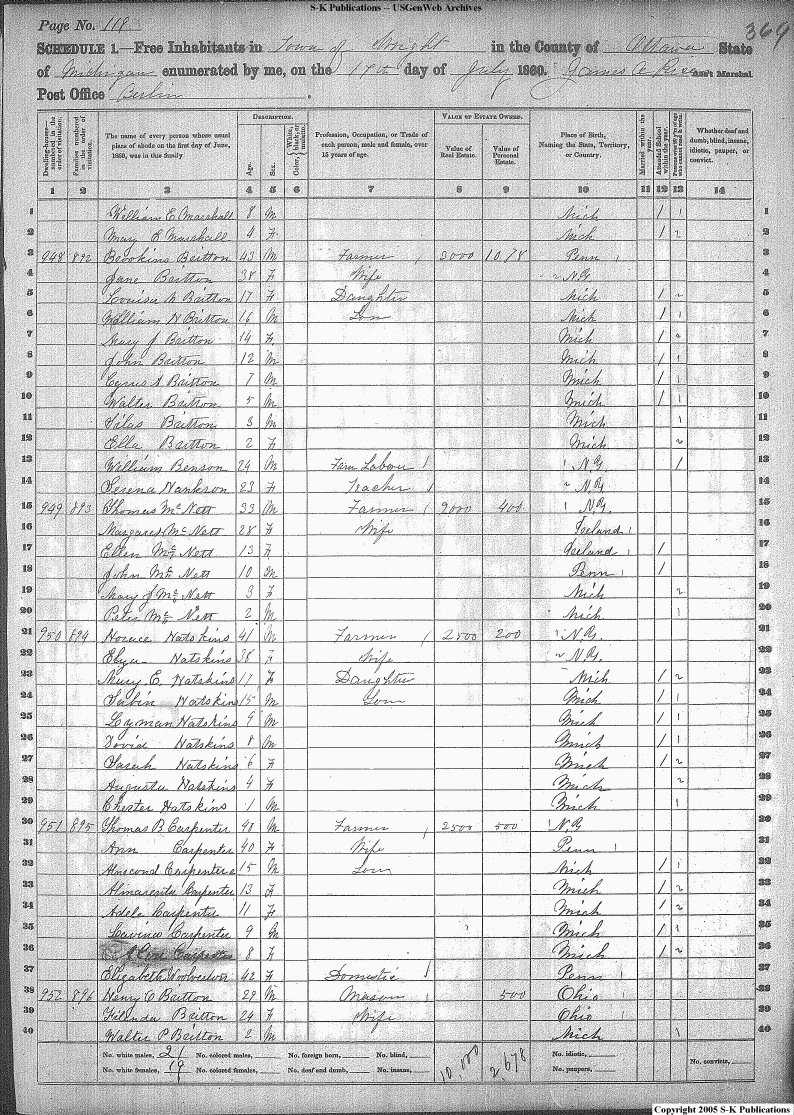 S-K Publications -- USGenWeb Archives
Page No. 119
369
SCHEDULE 1.—Free Inhabitants in Town of Wright in the County of Ottawa State
of Michigan enumerated by me, on the 17th day of July 1860. James A Rice Ass't Marshal
Post Office Berlin
Dwelling-houses numbered in the order of visitation.
Families numbered in the order of visitation.
The name of every person whose usual place of abode on the first day of June, 1860, was in this family
DESCRIPTION.
Age.
Sex.
Color, White, black, or mulatto.
Profession, Occupation, or Trade of each person, male and female, over 15 years of age.
VALUE OF ESTATE OWNED.
Value of Real Estate.
Value of Personal Estate.
Place of Birth, Naming the State, Territory, or Country.
Married within the year.
Attended School within the year.
Whether deaf and dumb, blind, insane, idiotic, pauper, or convict.
1 2 3 4 5 6 7 8 9 10 11 12 13 14
1 William E Marshall 8 M Mich / 1 1
2 Mary S Marshall 4 F Mich / 2 2
3 948 892 Brookins Britton 43 M Farmer / 3000 1078 Penn / 3
4 Jane Britton 38 F Wife N.Y. 4
5 Louisa Britton 17 F Daughter Mich / 2 5
6 William H Britton 16 M Son Mich / 1 6
7 Mary J Britton 14 F Mich / 2 7
8 John Britton 12 M Mich / 1 8
9 Cyrus A Britton 7 M Mich / 1 9
10 Walter Britton 5 M Mich / 1 10
11 Silas Britton 3 M Mich 1 11
12 Ella Britton 2 F Mich 2 12
13 William Benson 24 M Farm Labour / N.Y. / 13
14 Serena Hankson 23 F Teacher / N.Y. 14
15 949 893 Thomas McNett 33 M Farmer / 2000 400 N.Y. 15
16 Margaret McNett 28 F Wife Ireland / 16
17 Ellen McNett 13 F Ireland / / 17
18 John McNett 10 M Penn / / 18
19 Mary J McNett 3 F Mich 2 19
20 Peter McNett 2 M Mich 1 20
21 950 894 Horace Hatskins 41 M Farmer / 2500 200 N.Y. 21
22 Hatskins 38 F Wife N.Y. 22
23 Mary E. Hatskins 17 F Daughter Mich / 2 23
24 Sabin Hatskins 15 M Son Mich / 1 24
25 Lyman Hatskins 9 M Mich / 1 25
26 David Hatskins 8 M Mich / 1 26
27 Sarah Hatskins 6 F Mich / 2 27
28 Augusta Hatskins 4 F Mich 2 28
29 Chester Hatskins 1 M Mich 1 29
30 951 895 Thomas B Carpenter 48 M Farmer / 2500 500 N.Y. 30
31 Ann Carpenter 40 F Wife Penn / 31
32 Carpenter 15 M Son Mich / 1 32
33 Carpenter 13 F Mich / 2 33
34 Adela Carpenter 11 F Mich / 2 34
35 Carpenter 9 M Mich / 1 35
36 Carpenter 8 F Mich / 2 36
37 Elizabeth 42 F Domestic / Penn / 37
38 952 896 Henry C Britton 29 M Mason / 500 Ohio / 38
39 Britton 24 F Wife Ohio / 39
40 Walter P Britton 2 M Mich 1 40
No. white males, 21 No. colored males, No. foreign born, No. blind, 10,000 2678 No. idiotic, No. convicts,
No. white females, 19 No. colored females, No. deaf and dumb, No. insane, No. paupers,
Copyright 2005 S-K Publications